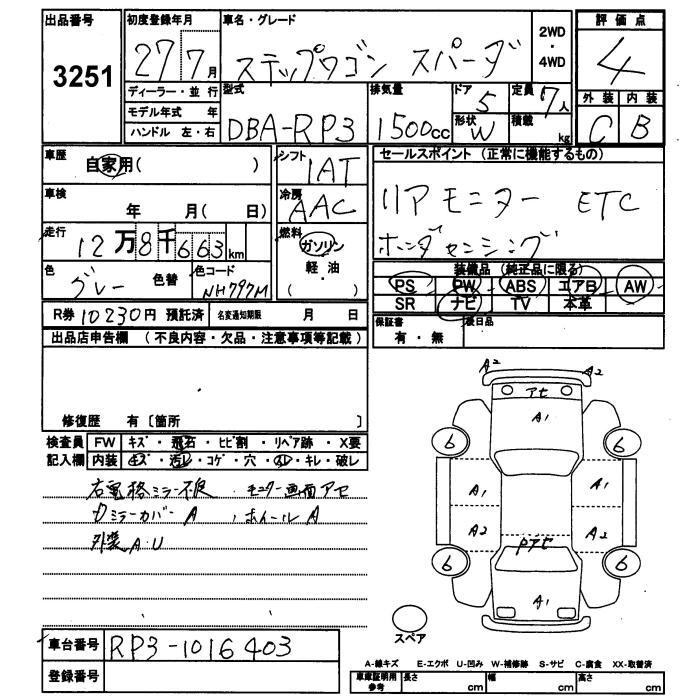 出品番号 初度登録年月 車名・グレード 評価点
3251 27 7月 ステップワゴン スパーダ 2WD・4WD 4
ディーラー・並行 型式 排気量 ドア 5 定員 7人 外装 内装
モデル年式 年 DBA-RP3 1500cc 形状 W 積載 kg C B
ハンドル 左・右
車歴 自家用( ) シフト IAT セールスポイント (正常に機能するもの)
車検 年 月( 日) 冷房 AAC リアモニター ETC
走行 12万8千663km 燃料 ガソリン 軽・油 ( ) ホンダセンシング
色 グレー 色替 色コード NH797M 装備品 (純正品に限る)
PS PW ABS エアB AW
SR ナビ TV 本革
R券 10230円 預託済 名変通知期限 月 日 保証書 有・無 後日品
出品店申告欄 (不良内容・欠品・注意事項等記載)
修復歴 有〔箇所 〕
検査員 FW キズ・飛石・ヒビ割・リペア跡・X要
記入欄 内装 キズ・汚レ・コゲ・穴・スレ・キレ・破レ
右電格ミラー不良 モニター画面アセ
ミラーカバー A ホイール A
外装 A・U
A2 A2
アセ
A1
6 6
A1 A1
A2 A2
Pアセ
6 6
A1
スペア
車台番号 RP3-1016403
登録番号
A-線キズ E-エクボ U-凹み W-補修跡 S-サビ C-腐食 XX-取替済
車庫証明用参考 長さ cm 幅 cm 高さ cm